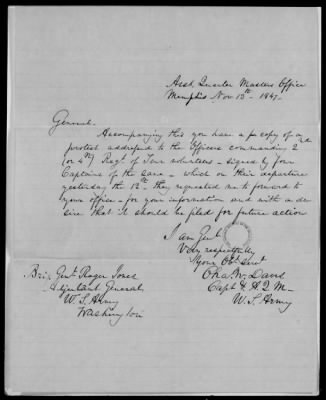 Asst. Quarter Masters Office
Memphis Nov 13th 1847.
General.
Accompanying this you have a copy of a
protest addressed to the Officers commanding 2nd
(or 4th) Regt of Tenn volunteers - signed by four
Captains of the same - which on their departure
yesterday the 12th they requested me to forward to
your office - for your information and with a de
sire that it should be filed for future action
I am Genl
Very respectfully
Your Obt Servt
Chas. W. Davis
Capt & A Q M
U. S. Army
Brig. Genl. Roger Jones
Adjutant General
U. S. Army
Washington